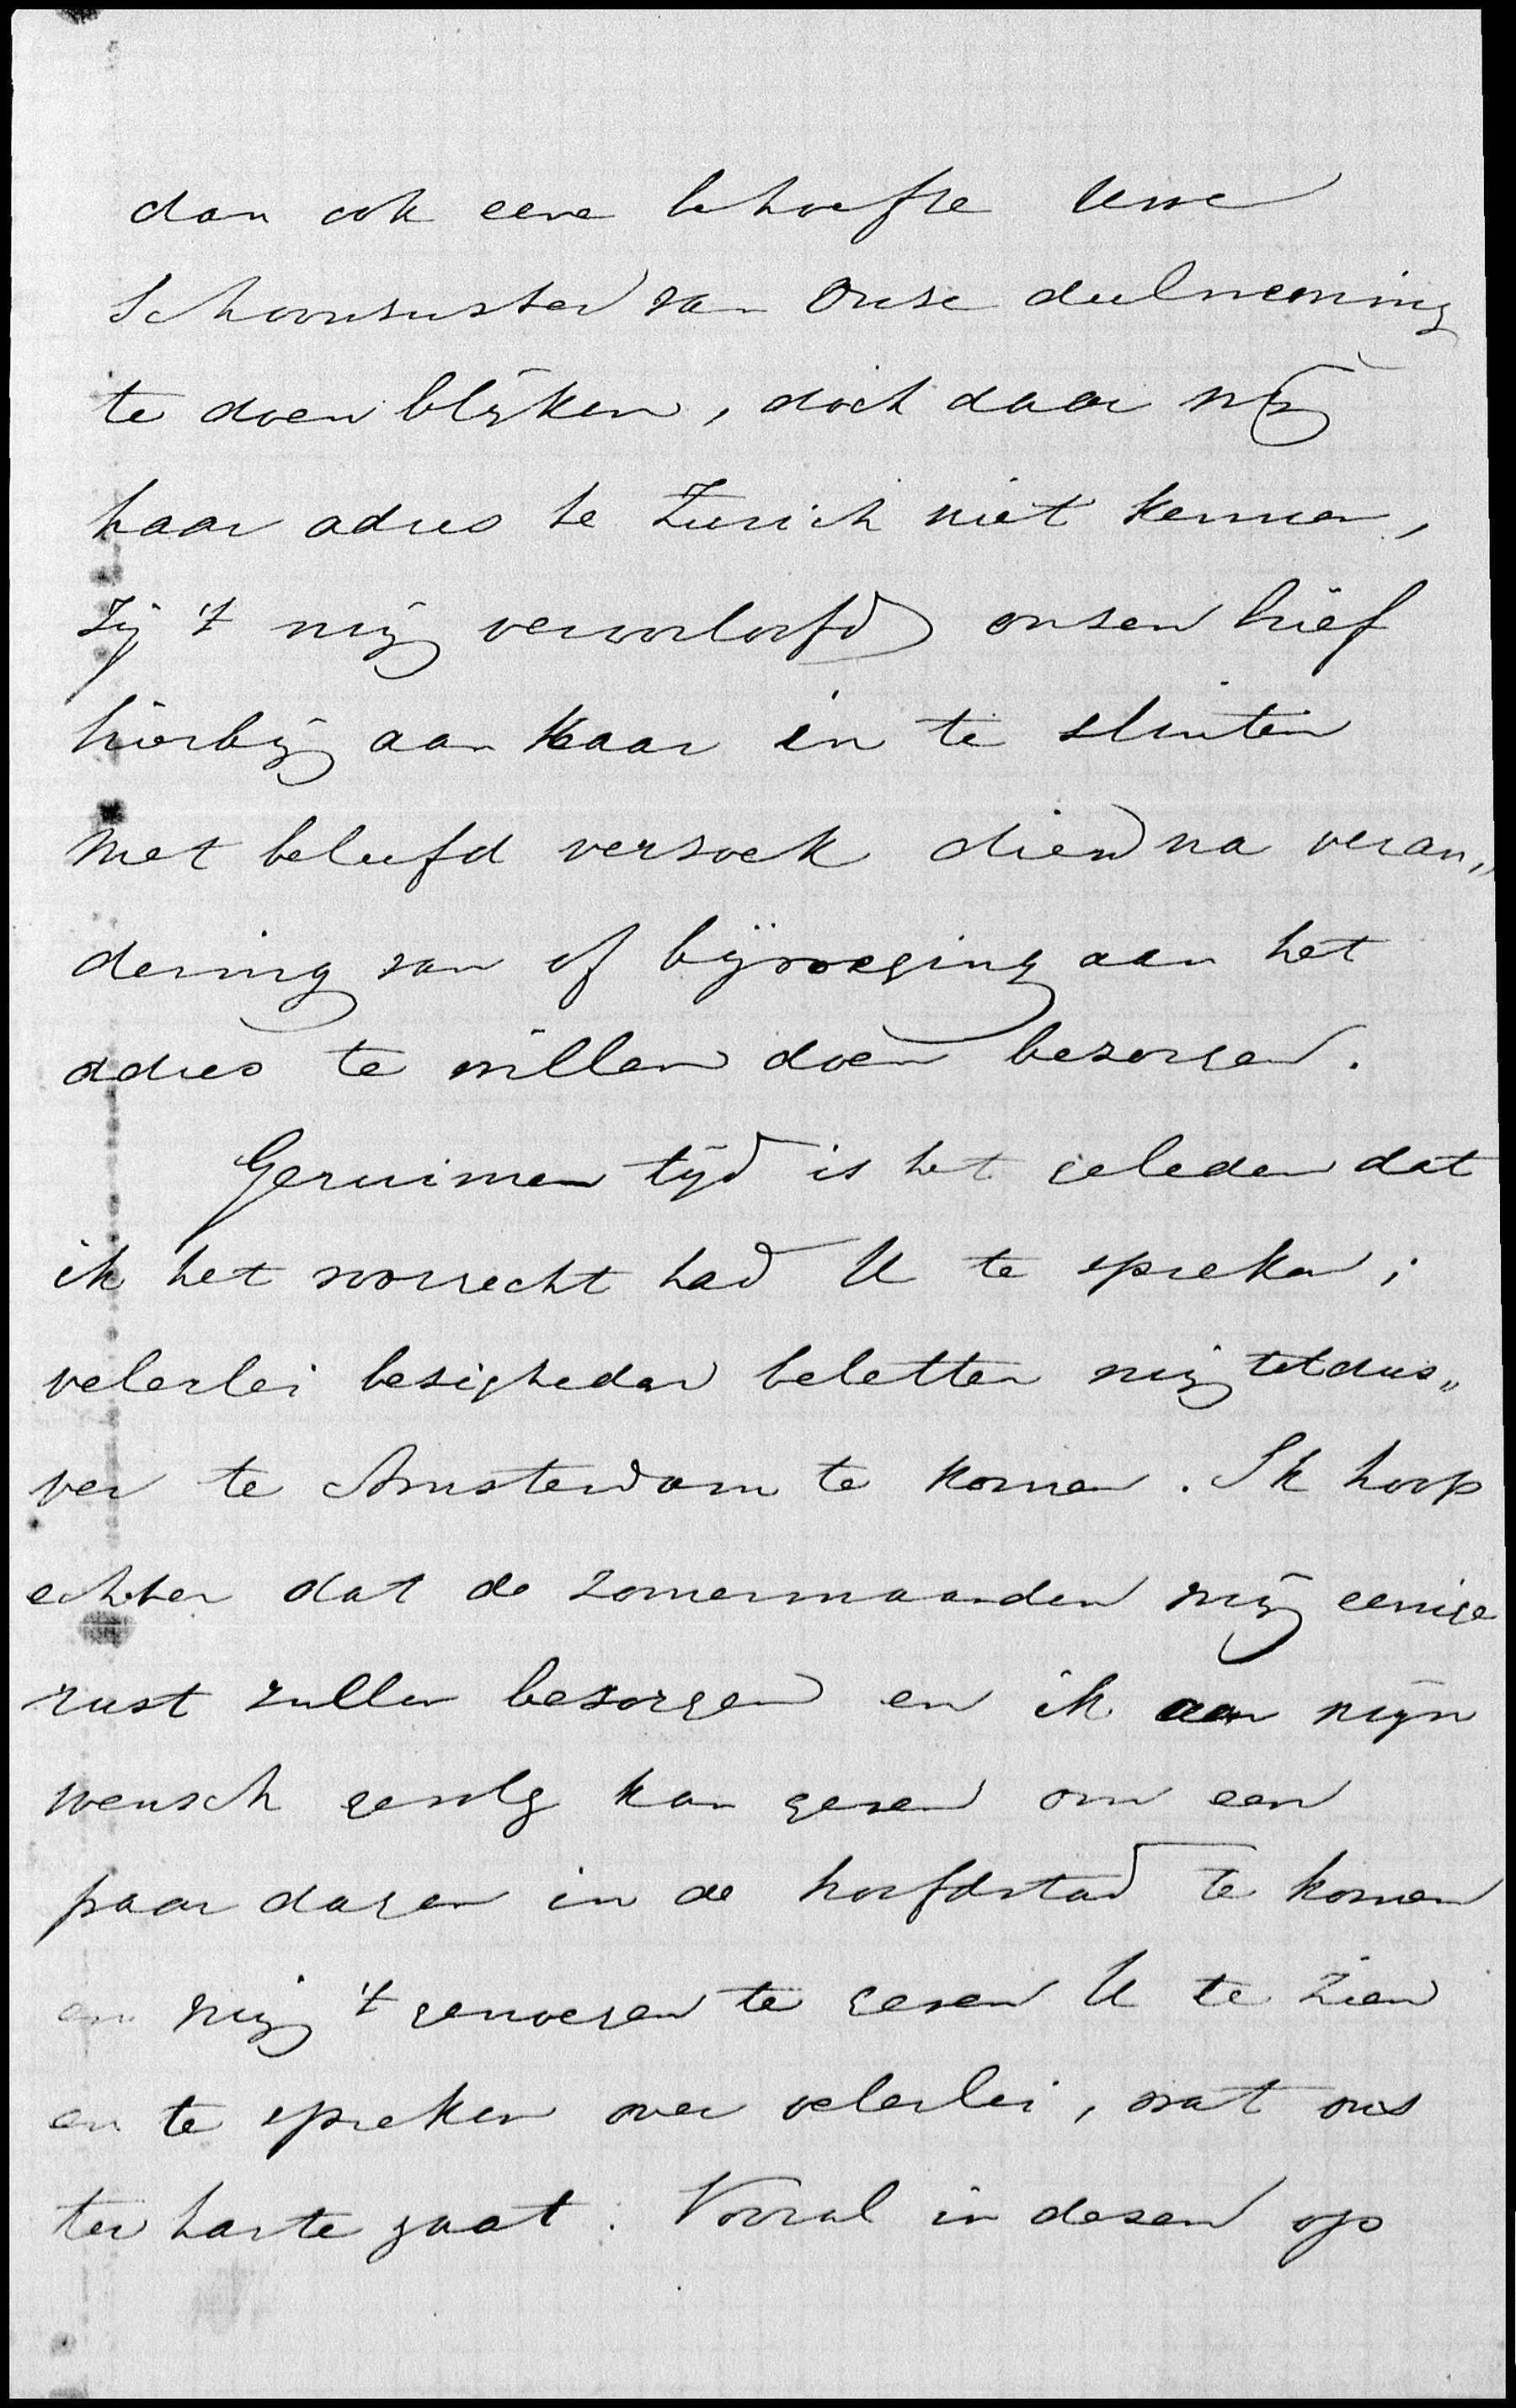 dan ook eene behoefte Uwe
Schoonzuster van onze deelneming
te doen blijken, doch daar wij
haar adres te Zurich niet kennen,
zij 't mij veroorloofd onzen brief
hierbij aan haar in te sluiten
met beleefd verzoek dien na veran„
dering van of bijvoeging aan het
adres te willen doen bezorgen.
Geruimen tijd is het geleden dat
ik het voorrecht had U te spreken;
velerlei bezigheden beletten mij totdus„
ver te Amsterdam te komen. Ik hoop
echter dat de zomermaanden mij eenige
rust zullen bezorgen en ik aan mijn
wensch gevolg kan geven om een
paar dagen in de hoofdstad te komen
en mij 't genoegen te geven U te zien
en te spreken over velerlei, wat ons
ter harte gaat. Vooral in dezen op